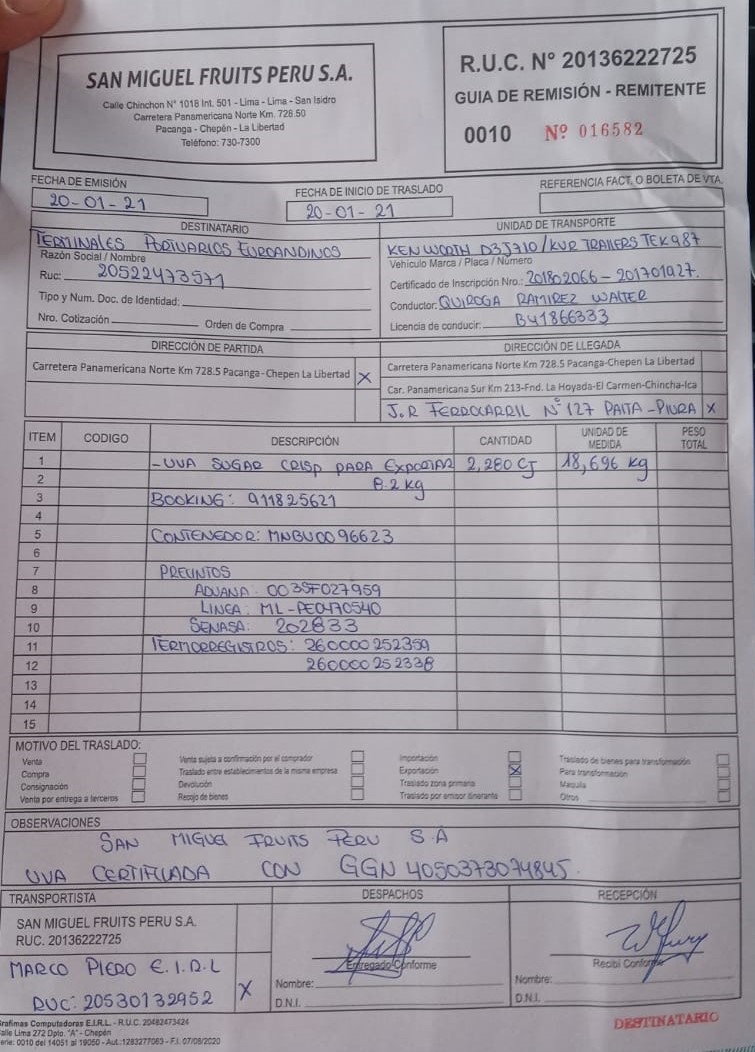 SAN MIGUEL FRUITS PERU S.A.
Calle Chinchon N° 1018 Int. 501 - Lima - Lima - San Isidro
Carretera Panamericana Norte Km. 728.50
Pacanga - Chepén - La Libertad
Teléfono: 730-7300
R.U.C. N° 20136222725
GUIA DE REMISIÓN - REMITENTE
0010 Nº 016582
FECHA DE EMISIÓN
20-01-21
FECHA DE INICIO DE TRASLADO
20-01-21
REFERENCIA FACT. O BOLETA DE VTA.
DESTINATARIO
TERMINALES PORTUARIOS EUROANDINOS
Razón Social / Nombre
Ruc: 20522473571
Tipo y Num. Doc. de Identidad:
Nro. Cotización Orden de Compra
UNIDAD DE TRANSPORTE
KENWORTH D3J710/KUR TRAILERS TEK987
Vehículo Marca / Placa / Número
Certificado de Inscripción Nro.: 201802066 - 201701927.
Conductor: QUIROGA RAMIREZ WALTER
Licencia de conducir: B41866333
DIRECCIÓN DE PARTIDA
Carretera Panamericana Norte Km 728.5 Pacanga-Chepen La Libertad X
DIRECCIÓN DE LLEGADA
Carretera Panamericana Norte Km 728.5 Pacanga-Chepen La Libertad
Car. Panamericana Sur Km 213-Fnd. La Hoyada-El Carmen-Chincha-Ica
J.R FERROCARRIL N° 127 PAITA - PIURA X
ITEM CODIGO DESCRIPCIÓN CANTIDAD UNIDAD DE MEDIDA PESO TOTAL
1 - UVA SUGAR CRISP PARA EXPORTAR 2,280 CJ 18,696 kg
2 8.2 kg
3 BOOKING: 911825621
4
5 CONTENEDOR: MNBU0096623
6
7 PRECINTOS
8 ADUANA: 003SF027959
9 LINEA: ML-PE0470540
10 SENASA: 202833
11 TERMORREGISTROS: 260000252359
12 260000252338
13
14
15
MOTIVO DEL TRASLADO:
Venta
Compra
Consignación
Venta por entrega a terceros
Venta sujeta a confirmación por el comprador
Traslado entre establecimientos de la misma empresa
Devolución
Recojo de bienes
Importación
Exportación X
Traslado zona primaria
Traslado por emisor itinerante
Traslado de bienes para transformación
Para transformación
Maquila
Otros
OBSERVACIONES
SAN MIGUEL FRUITS PERU S.A
UVA CERTIFICADA CON GGN 4050373074845.
TRANSPORTISTA
SAN MIGUEL FRUITS PERU S.A.
RUC. 20136222725
MARCO PIERO E.I.R.L
RUC: 20530132952 X
DESPACHOS
Entregado Conforme
Nombre:
D.N.I.
RECEPCIÓN
Recibí Conforme
Nombre:
D.N.I.
Grafimas Computadoras E.I.R.L. - R.U.C. 20482473424
Calle Lima 272 Dpto. "A" - Chepén
Serie: 0010 del 14051 al 19050 - Aut.:1283277063 - F.I. 07/08/2020
DESTINATARIO